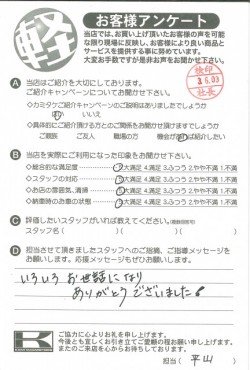 軽
お客様アンケート
当店では、お買い上げ頂いたお客様の声を可能
な限り現場に反映し、お客様により良い商品と
サービスを提供する事に努めています。
大変お手数ですが是非お声をお聞かせ下さい。
検印
3.6.03
社長
A 当店はご紹介を大切にしております。
ご紹介キャンペーンについてお聞かせ下さい。
◇カミタケご紹介キャンペーンのご説明はありましたでしょうか
はい いいえ
◇具体的にご紹介頂ける方とのご関係をお聞かせ頂けますでしょうか
ご親族 ご友人 職場の方 機会があれば紹介したい
B 当店を実際にご利用になった印象をお聞かせ下さい。
◇総合的な満足度 5大満足 4.満足 3.ふつう 2.やや不満 1.不満
◇スタッフの対応 5大満足 4.満足 3.ふつう 2.やや不満 1.不満
◇お店の雰囲気、清掃 5大満足 4.満足 3.ふつう 2.やや不満 1.不満
◇納車時のお車の状態 5大満足 4.満足 3.ふつう 2.やや不満 1.不満
C 評価したいスタッフがいれば教えてください。(複数回答可)
スタッフ名( )( )( )
D 担当させて頂きましたスタッフへのご指摘、ご指導メッセージを
お願いします。応援メッセージもぜひお願いします。
いろいろ お世話になり
ありがとうございました
K
ご協力に心よりお礼を申し上げます。
今後とも宜しくお引き立てご愛顧の程お願い申し上げます。
またのご来店を心からお待ちしております。
担当( 平山 )